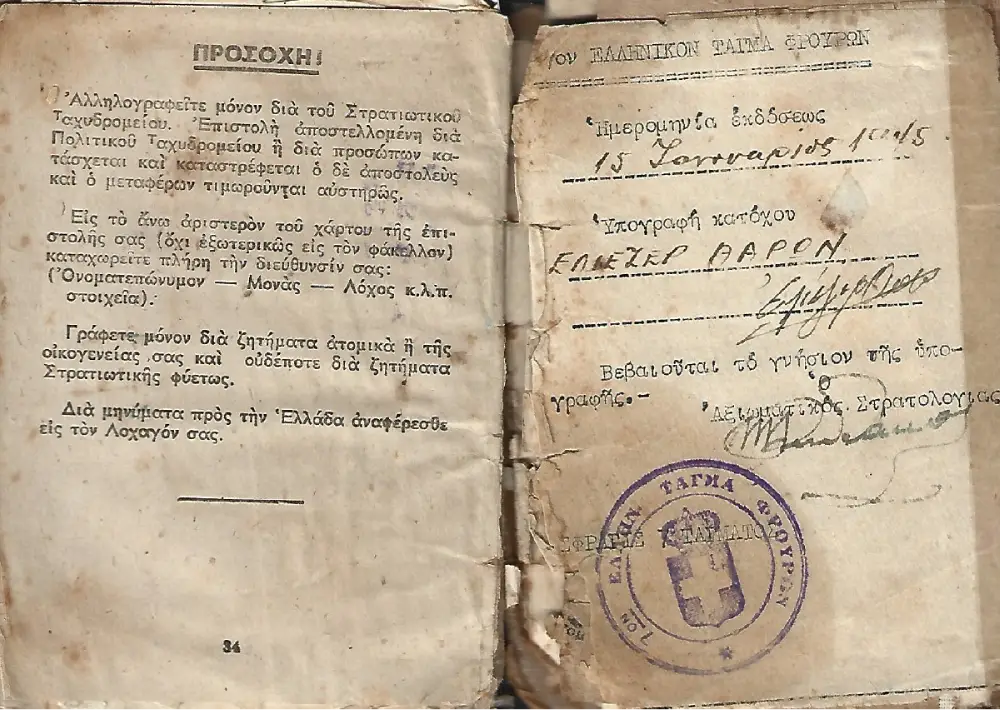 ΠΡΟΣΟΧΗ!
Ἀλληλογραφεῖτε μόνον διὰ τοῦ Στρατιωτικοῦ
Ταχυδρομείου. Ἐπιστολὴ ἀποστελλομένη διὰ
Πολιτικοῦ Ταχυδρομείου ἢ διὰ προσώπων κα-
τάσχεται καὶ καταστρέφεται ὁ δὲ ἀποστολεὺς
καὶ ὁ μεταφέρων τιμωροῦνται αὐστηρῶς.
Εἰς τὸ ἄνω ἀριστερὸν τοῦ χάρτου τῆς ἐπι-
στολῆς σας (ὄχι ἐξωτερικῶς εἰς τὸν φάκελλον)
καταχωρεῖτε πλήρη τὴν διεύθυνσίν σας:
(Ὀνοματεπώνυμον — Μονὰς — Λόχος κ.λ.π.
στοιχεῖα).
Γράφετε μόνον διὰ ζητήματα ἀτομικὰ ἢ τῆς
οἰκογενείας σας καὶ οὐδέποτε διὰ ζητήματα
Στρατιωτικῆς φύσεως.
Διὰ μηνύματα πρὸς τὴν Ἑλλάδα ἀναφέρεσθε
εἰς τὸν Λοχαγόν σας.
34
7ον ΕΛΛΗΝΙΚΟΝ ΤΑΓΜΑ ΦΡΟΥΡΩΝ
Ἡμερομηνία ἐκδόσεως
15 Ἰανουαρίος 1945
Ὑπογραφή κατόχου
ΕΛΙΕΖΕΡ ΑΑΡΩΝ
Βεβαιοῦται τὸ γνήσιον τῆς ὑπο-
γραφῆς.-
Ὁ
Ἀξιωματικός Στρατολογίας
ΣΦΡΑΓΙΣ ΤΑΓΜΑΤΟΣ
7ΟΝ ΕΛΛΗΝ. ΤΑΓΜΑ ΦΡΟΥΡΩΝ